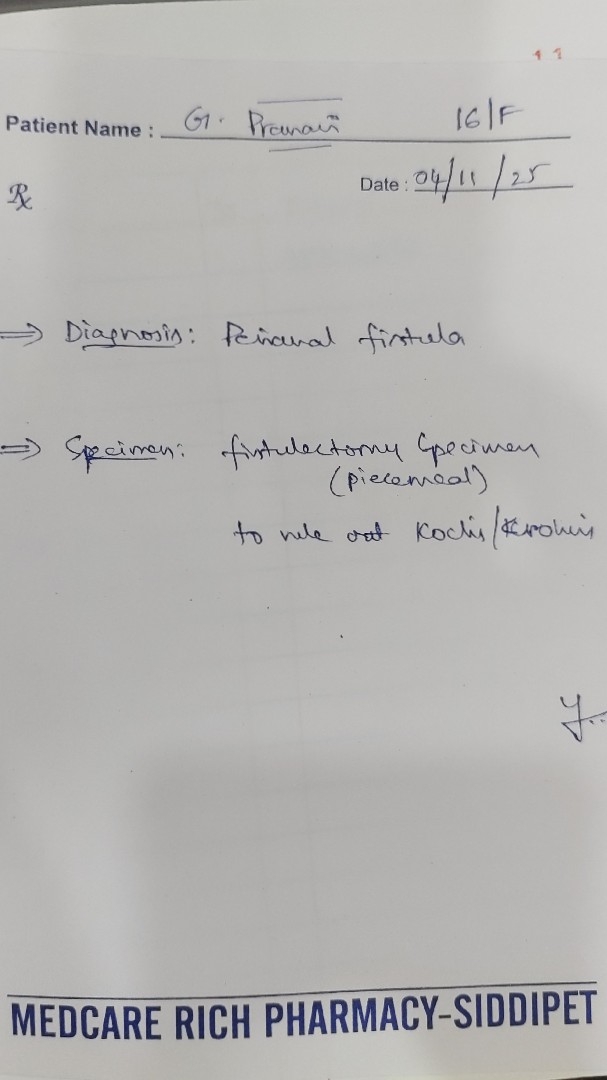 Patient Name : G. Pranavi 16/F
Rx
Date : 04/11/25
⇒ Diagnosis: Perianal fistula
⇒ Specimen: fistulectomy Specimen
(piecemeal)
to rule out Koch's/Krohn's
MEDCARE RICH PHARMACY-SIDDIPET